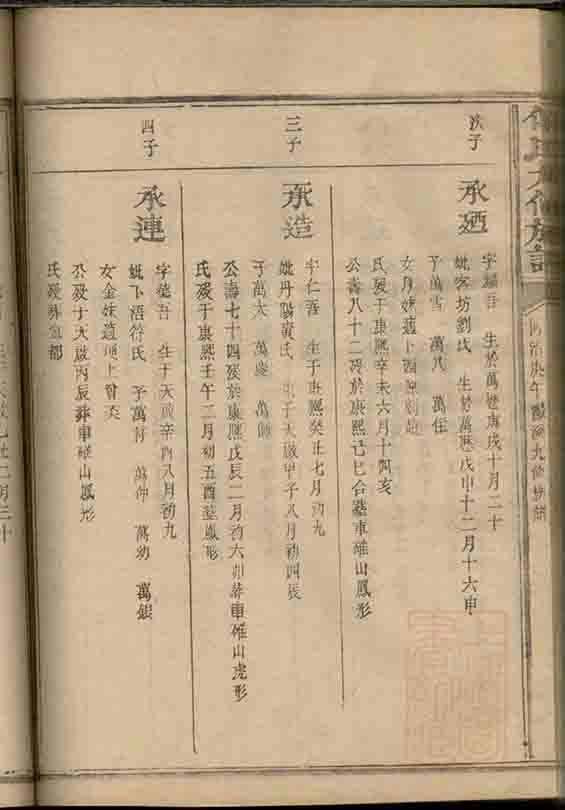 次子
承迺
字耀吾 生於萬曆庚戌十月二十
妣客坊劉氏 生於萬曆戊申十二月十六申
子萬雪 萬八 萬任
女月妹適
氏歿于康熙辛未六月十四亥
公壽八十二歿於康熙己巳合葬車碓山鳳形
三子
承造
字仁吾 生于 七月初九
妣丹陽黃氏 生于天啟甲子八月初四辰
子萬太 萬慶 萬
公壽七十四歿於康熙戊辰二月初六卯葬車碓山虎形
氏歿于康熙壬午二月初五酉葬鳳形
四子
承連
字德吾 生于天啟辛酉八月初九
妣下浯符氏 子萬 萬仲 萬幼 萬銀
女金妹適 上曾
公歿于天啟丙辰葬車碓山鳳形
氏歿葬
同治庚午 九修